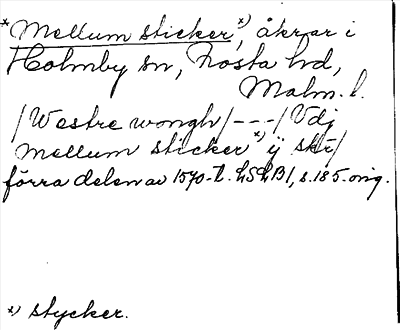 *Mellum sticker,*) åkrar i
Holmby sn, Frosta hd,
Malm. l.
/Westre wongh/---/Vdj
mellum sticker*) ÿ skr/
förra delen av 1570-t. LSLB1, s. 185. orig.
*) stycker.